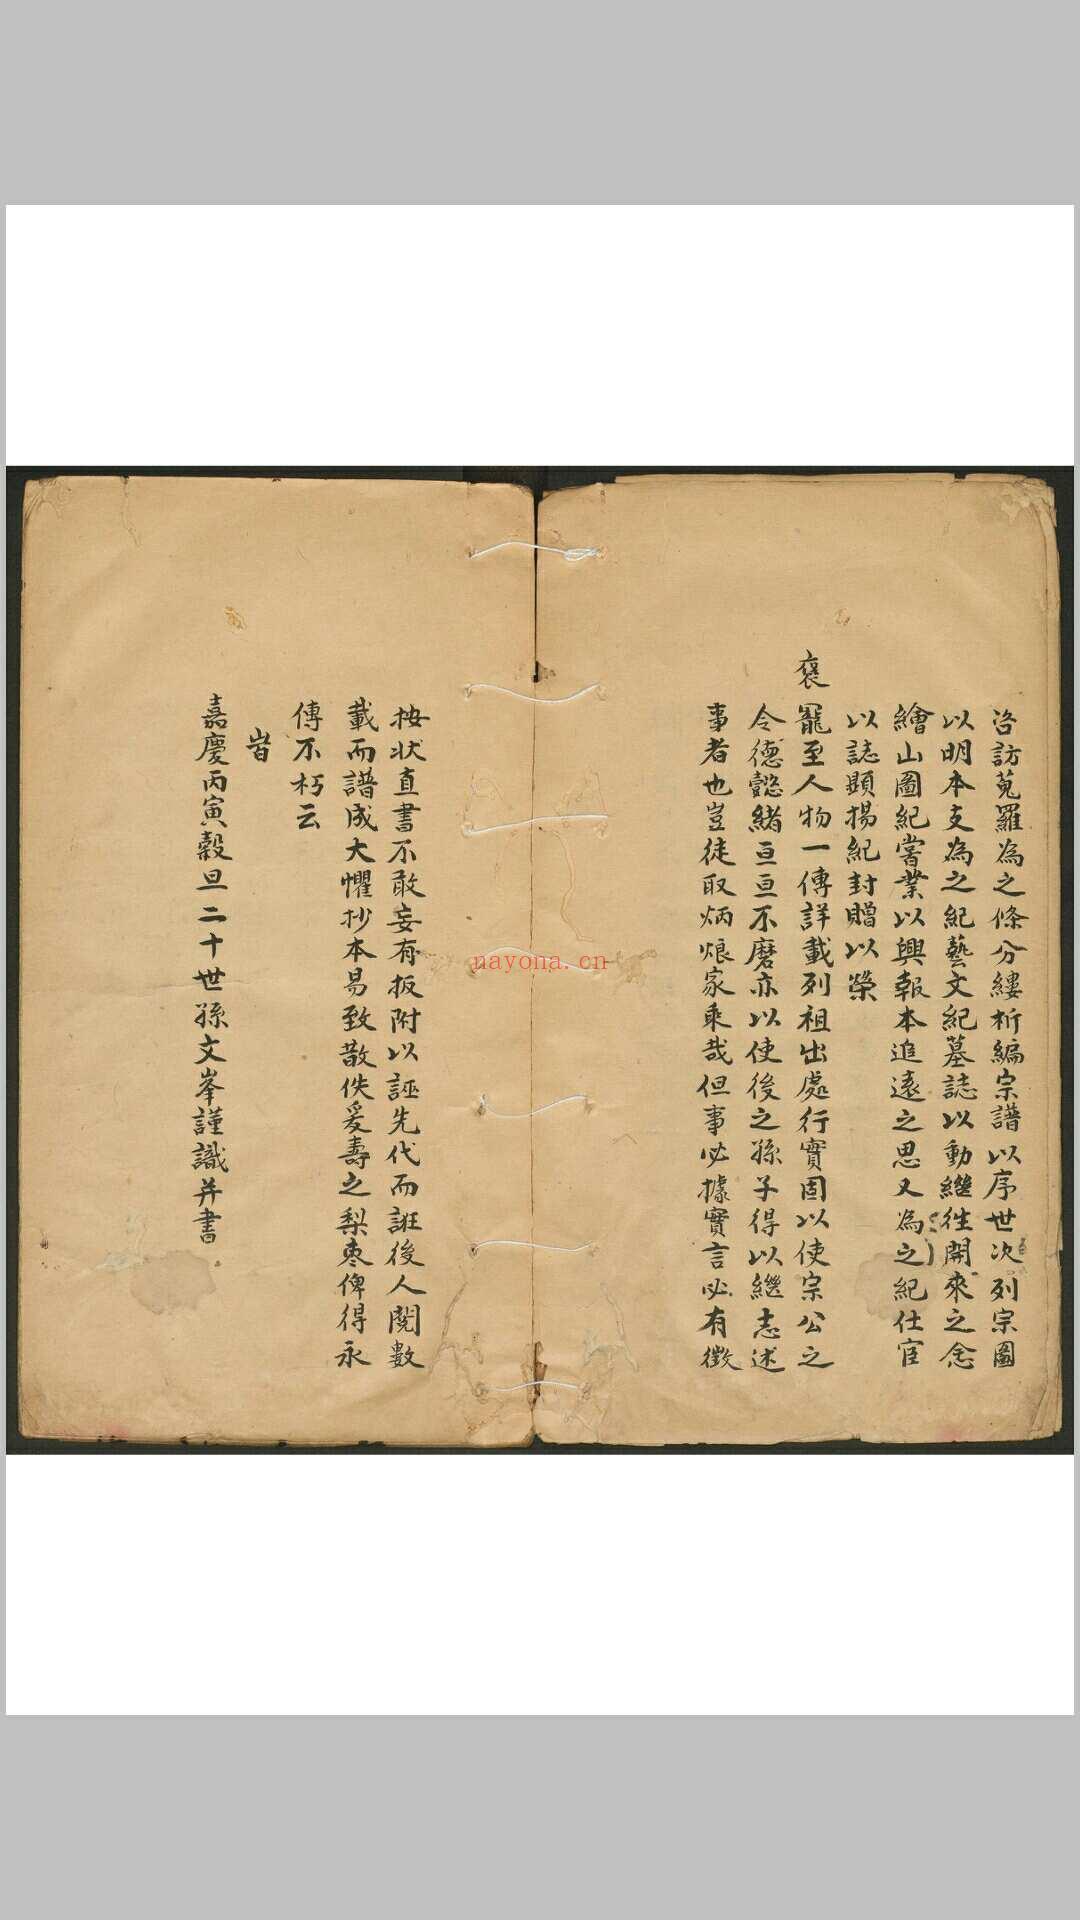 咨訪蒐羅為之條分縷析編宗譜以序世次列宗圖
以明本支為之紀藝文紀墓誌以動繼往開來之念
繪山圖紀嘗業以興報本追遠之思又為之紀仕宦
以誌顯揚紀封贈以榮
褒寵至人物一傳詳載列祖出處行實固以使宗公之
令德懿緒亘亘不磨亦以使後之孫子得以繼志述
事者也豈徒取炳烺家乘哉但事必據實言必有徵
按狀直書不敢妄有扳附以誣先代而誑後人閱數
載而譜成大懼抄本易致散佚爰壽之梨枣俾得永
傳不朽云
旹
嘉慶丙寅穀旦二十世孫文峯謹識并書
nayona.cn